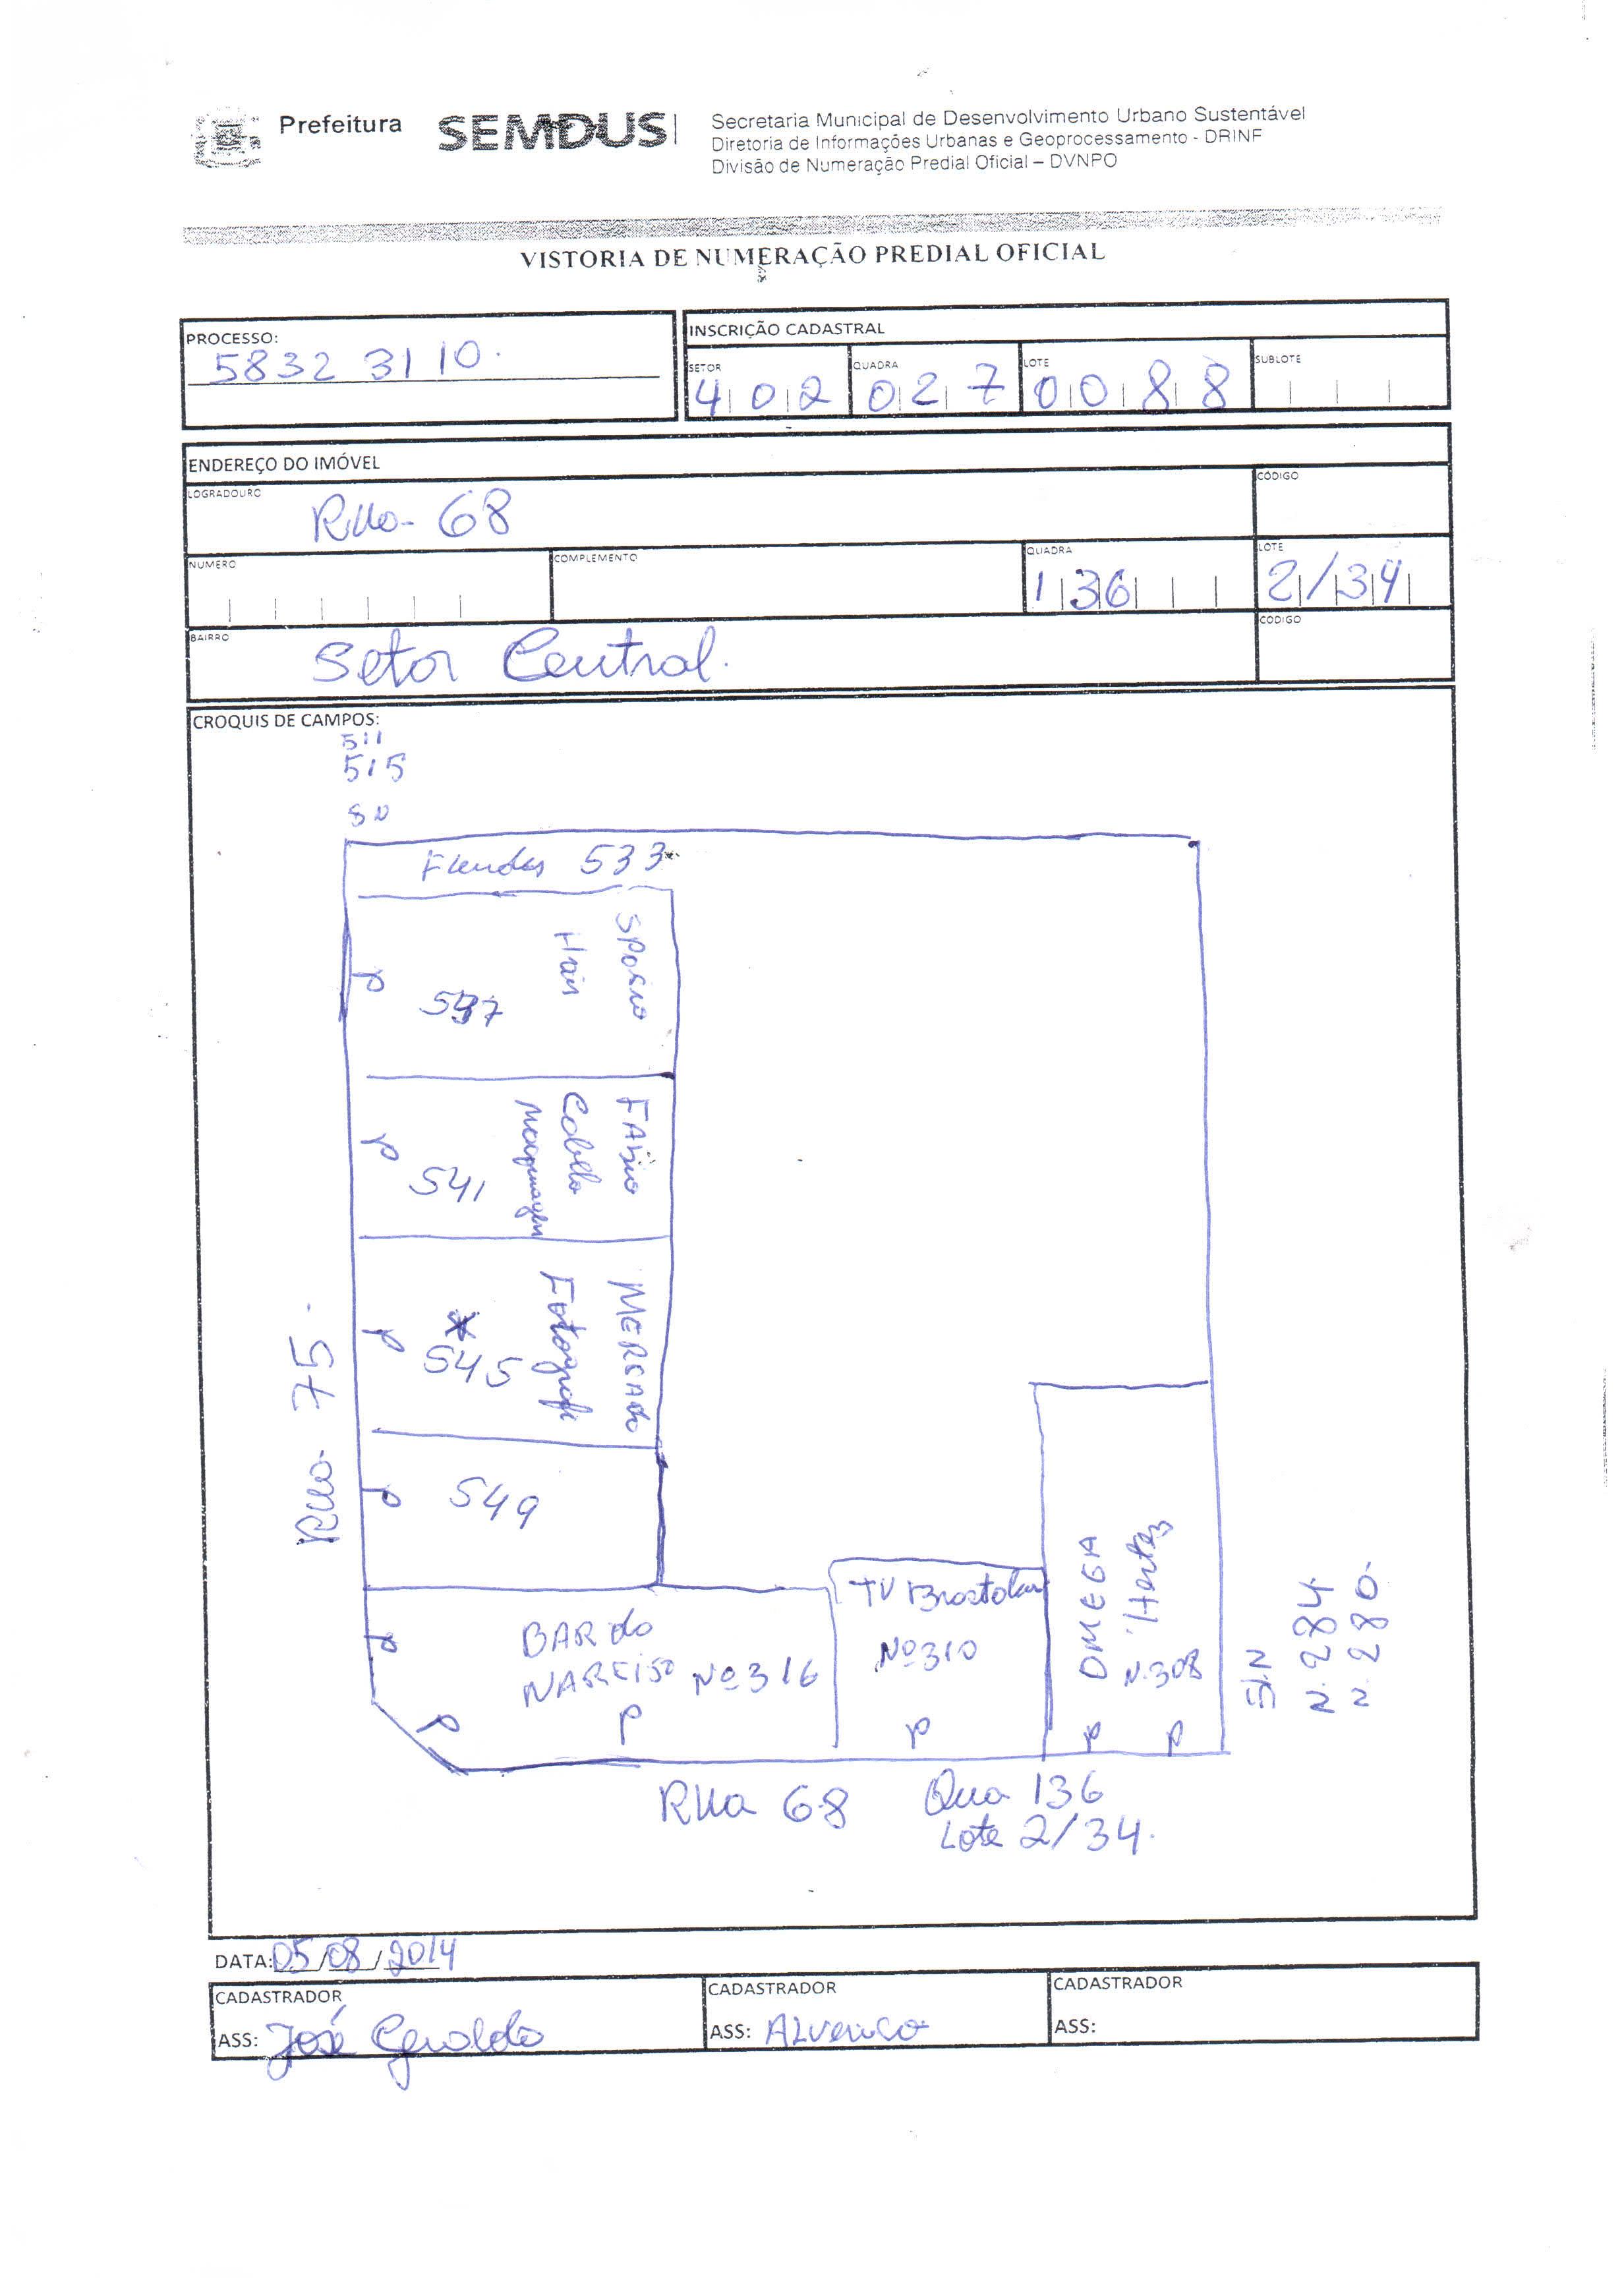 Prefeitura SEMDUS
Secretaria Municipal de Desenvolvimento Urbano Sustentável
Diretoria de Informações Urbanas e Geoprocessamento - DRINF
Divisão de Numeração Predial Oficial – DVNPO
VISTORIA DE NUMERAÇÃO PREDIAL OFICIAL
PROCESSO:
5832 3110.
INSCRIÇÃO CADASTRAL
SETOR QUADRA LOTE SUBLOTE
402 027 0088
ENDEREÇO DO IMÓVEL
LOGRADOURO CÓDIGO
Rua 68
NUMERO COMPLEMENTO QUADRA LOTE
136 2/34
BAIRRO CODIGO
Setor Central.
CROQUIS DE CAMPOS:
511
515
SN
533
Hair
537
FABIO
Cabelo
Maquiagem
541
MERCADO
Fotografi
545
549
Rua 75.
BAR do
NARCISO Nº 316
TV
Nº 310
OMEGA
N. 308
S/N
N. 284
N. 280.
Rua 68
Qua 136
Lote 2/34.
DATA: 05/08/2014
CADASTRADOR CADASTRADOR CADASTRADOR
ASS: José Geraldo ASS: ASS: